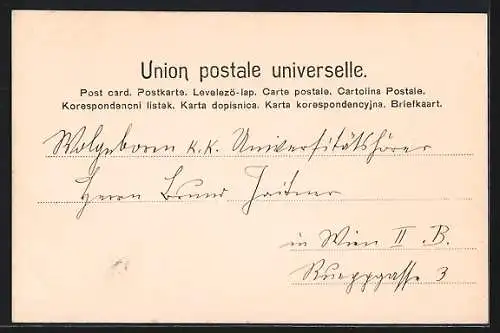 Union postale universelle.
Post card. Postkarte. Levelező-lap. Carte postale. Cartolina Postale.
Korespondencni listek. Karta dopisnica. Karta korespondencyjna. Briefkaart.
Wolgeboren k. k. Universitätshörer
Herrn Bruno
in Wien II. B.
Rueppgasse 3